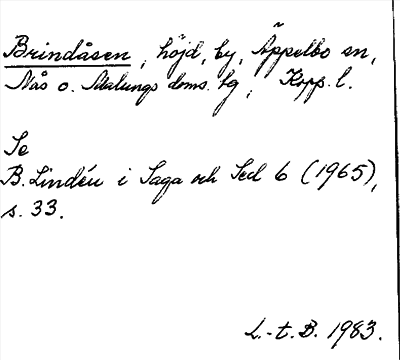 Brindåsen, höjd, by, Äppelbo sn,
Nås o. Malungs doms. tg, Kopp. l.
Se
B. Lindén i Saga och Sed 6 (1965),
s. 33.
L.-t. B. 1983.